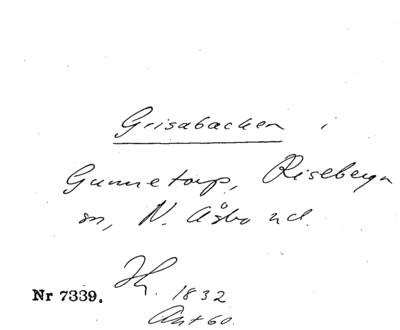 Grisabacken i
Gunnetorp, Riseberga
sn, N. Åsbo hd.
Hr. 1832
Nr 7339.
Akt 60